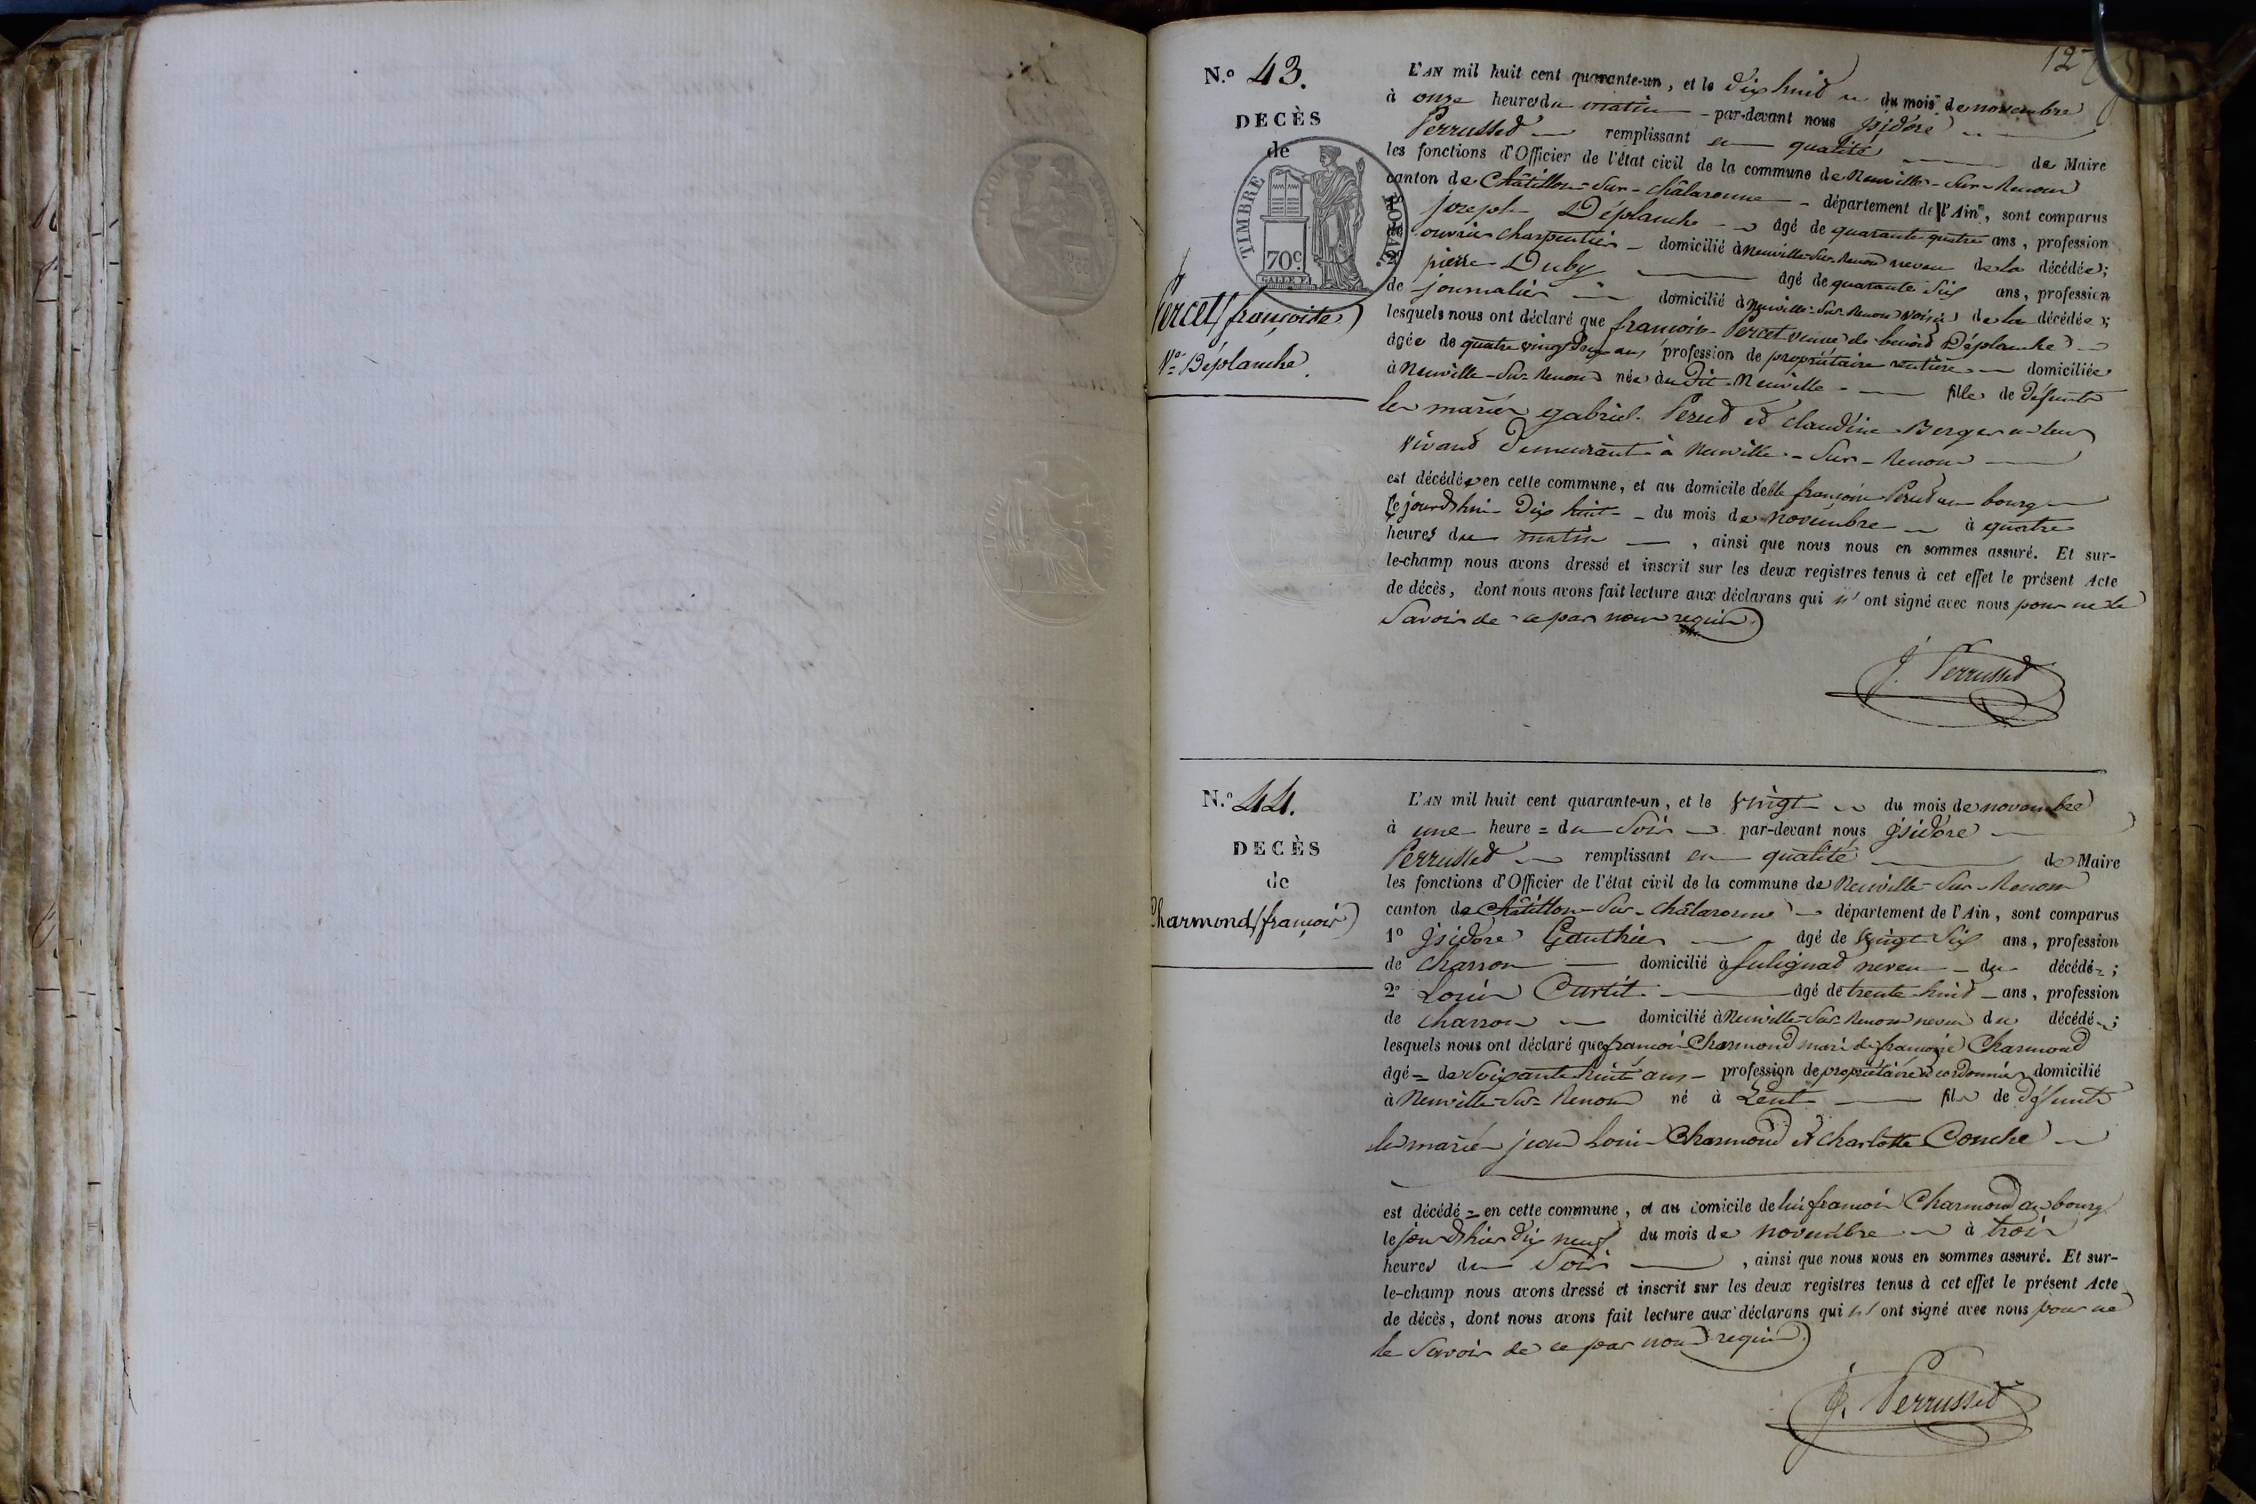 127
N.º 43.
DECÈS
de
TIMBRE ROYAL.
70c.
Percet (françoise)
Ve Déplanche.
L'AN mil huit cent quarante-un, et le dix huit du mois de novembre
à onze heures du matin par-devant nous jsidore
Perrusset remplissant en qualité de Maire
les fonctions d'Officier de l'état civil de la commune de Neuville-sur-Renom
canton de Châtillon-sur-châlaronne département de l'Ain, sont comparus
joseph Déplanche âgé de quarante quatre ans, profession
de ouvrier charpentier domicilié à Neuville-sur-Renom neveu de la décédée;
pierre Duby âgé de quarante six ans, profession
de journalier domicilié à Neuville-sur-Renom voisin de la décédée;
lesquels nous ont déclaré que françoise Percet veuve de benoit Déplanche
âgée de quatre vingt ans profession de propriétaire rentière domiciliée
à Neuville-sur-Renom née au dit Neuville fille de défunts
les mariés gabriel Percet et claudine Berger en leur
vivant demeurant à Neuville-sur-Renom
est décédée en cette commune, et au domicile d'elle françoise Percet au bourg
le jourdhui dix huit du mois de novembre à quatre
heures du matin, ainsi que nous nous en sommes assuré. Et sur-
le-champ nous avons dressé et inscrit sur les deux registres tenus à cet effet le présent Acte
de décès, dont nous avons fait lecture aux déclarans qui n'ont signé avec nous pour ne le
savoir de ce par nous requis
J. Perrusset
N.º 44.
DECÈS
de
Charmond (françois)
L'AN mil huit cent quarante-un, et le vingt du mois de novembre
à une heure = du soir par-devant nous jsidore
Perrusset remplissant en qualité de Maire
les fonctions d'Officier de l'état civil de la commune de Neuville-sur-Renom
canton de Châtillon-sur-châlaronne département de l'Ain, sont comparus
1º jsidore Gauthier âgé de vingt six ans, profession
de charron domicilié à Sulignat neveu du décédé;
2º Louis Curtil âgé de trente huit ans, profession
de charron domicilié à Neuville-sur-Renom neveu du décédé;
lesquels nous ont déclaré que françois Charmond mari de françoise Charmond
âgé = de soixante huit ans profession de propriétaire et cordonnier domicilié
à Neuville-sur-Renom né à Lent fils de défunts
les mariés jean Louis Charmond et charlotte Couche
est décédé = en cette commune, et au domicile de lui françois Charmond au bourg
le jour d'hier dix neuf du mois de novembre à trois
heures du soir, ainsi que nous nous en sommes assuré. Et sur-
le-champ nous avons dressé et inscrit sur les deux registres tenus à cet effet le présent Acte
de décès, dont nous avons fait lecture aux déclarans qui n'ont signé avec nous pour ne
le savoir de ce par nous requis
J. Perrusset